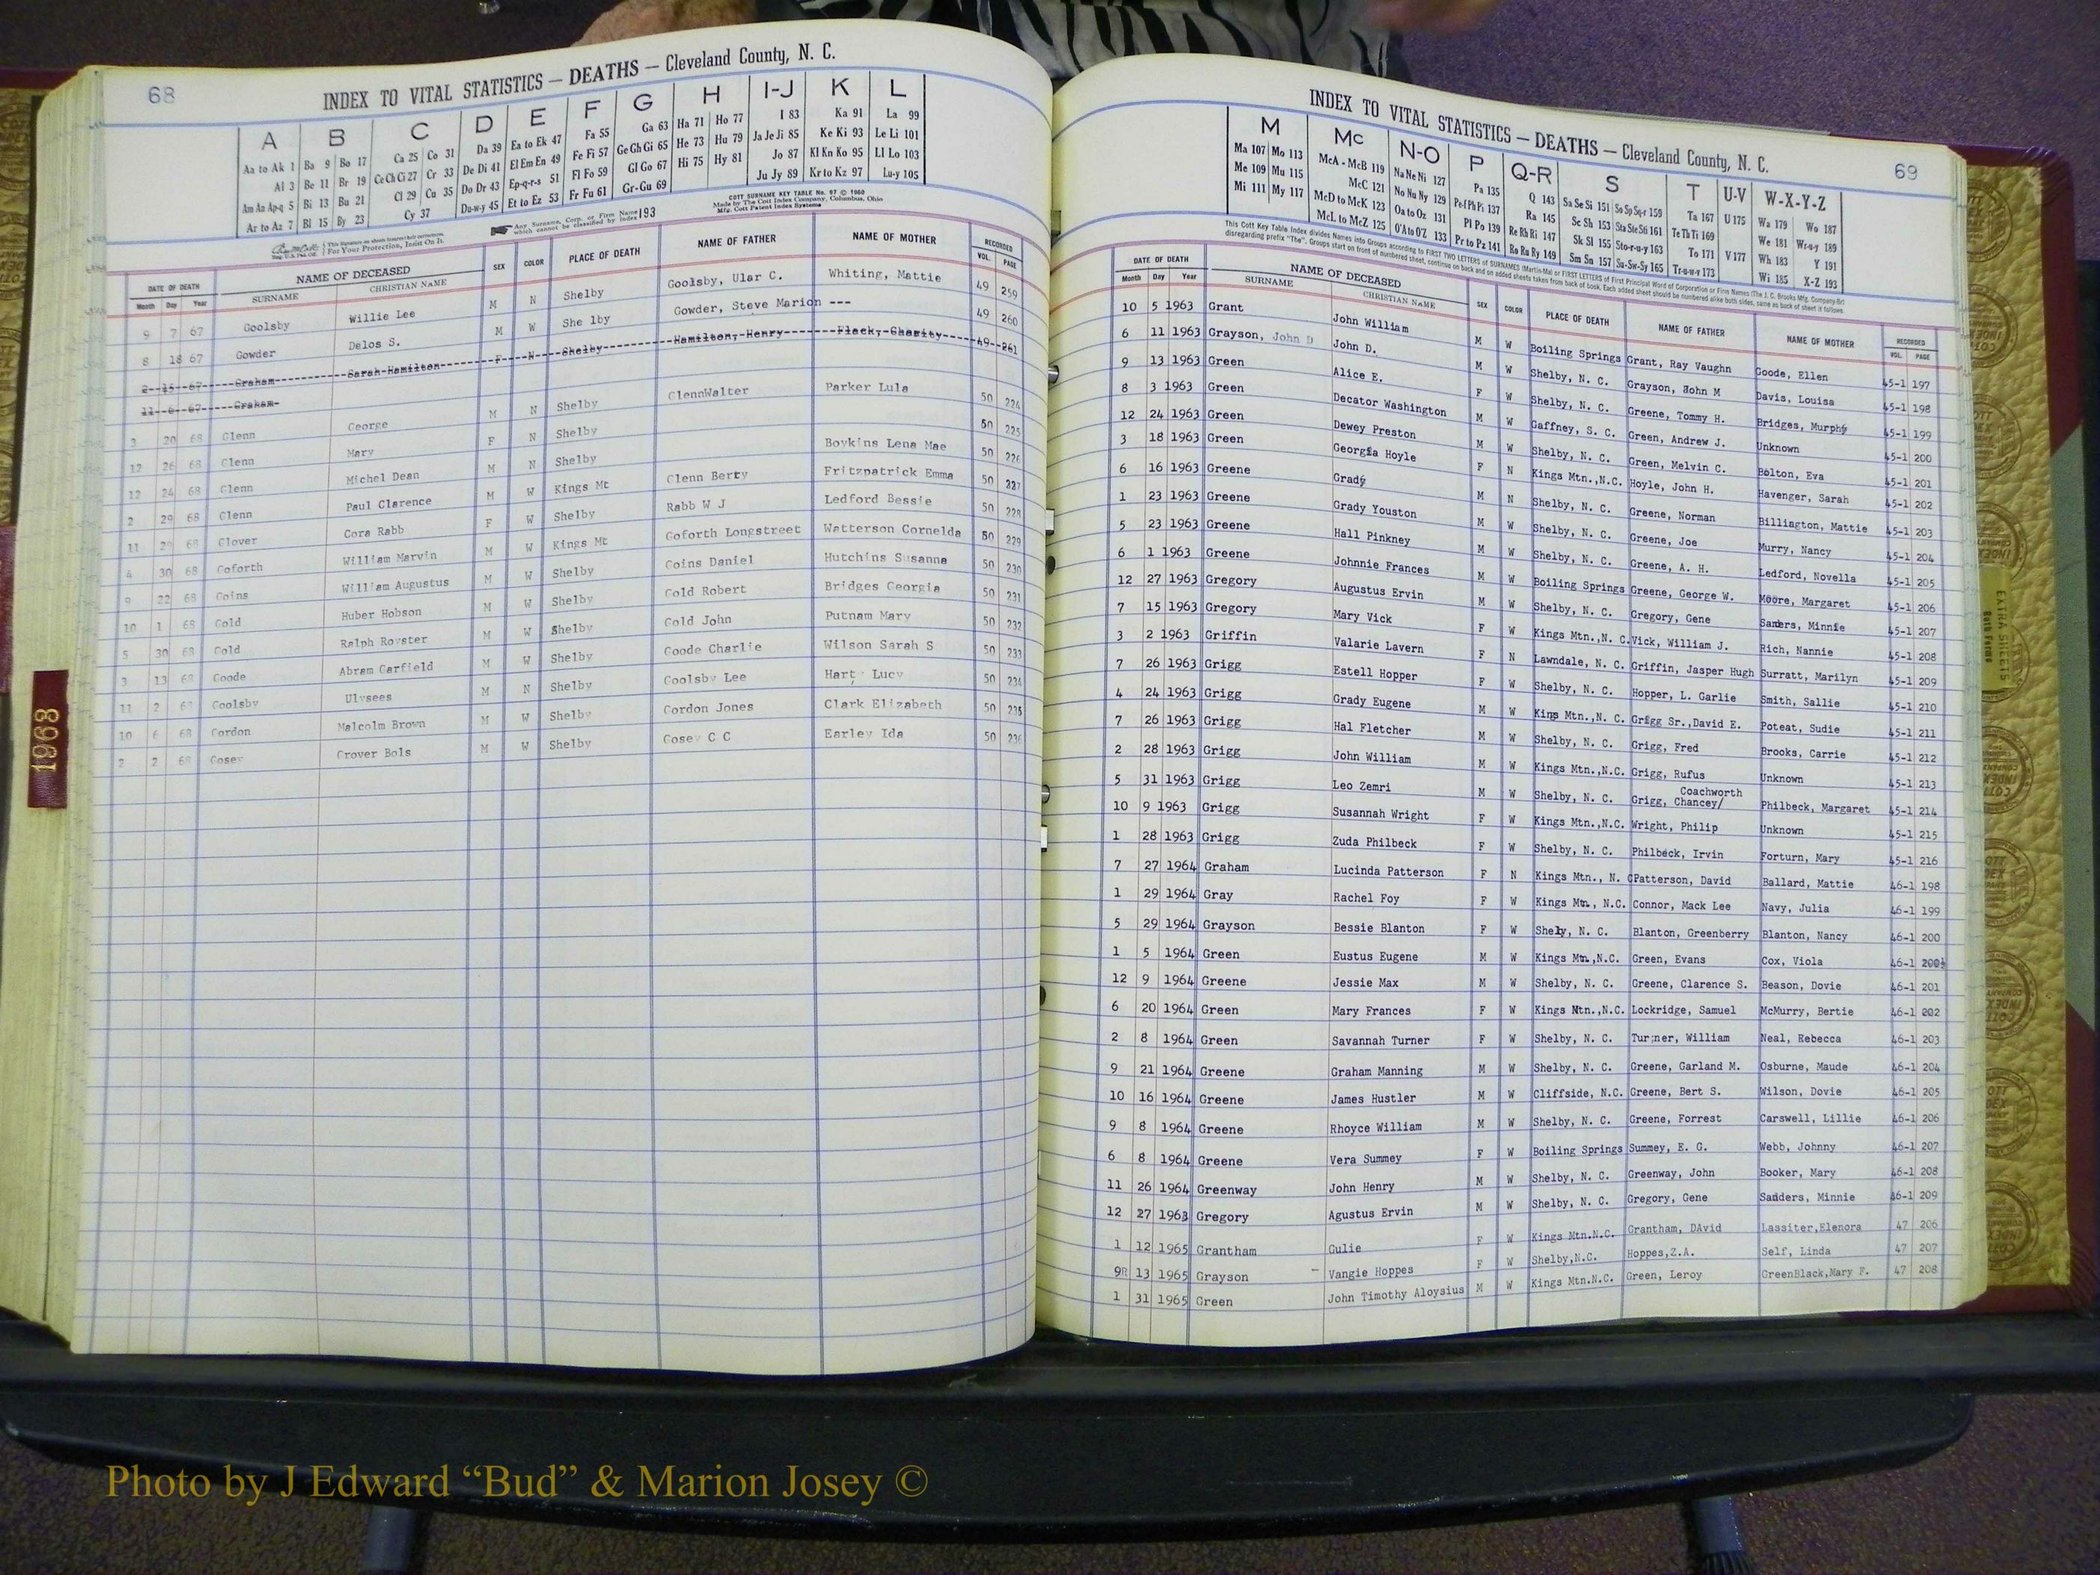 68
INDEX TO VITAL STATISTICS — DEATHS — Cleveland County, N. C.
A B C D E F G H I-J K L
Aa to Ak 1 Ba 9 Bo 17 Ca 25 Co 31 Da 39 Ea to Ek 47 Fa 55 Ga 63 Ha 71 Ho 77 I 83 Ka 91 La 99
Al 3 Be 11 Br 19 Ce Ch Ci 27 Cr 33 De Di 41 El Em En 49 Fe Fi 57 Ge Gh Gi 65 He 73 Hu 79 Ja Je Ji 85 Ke Ki 93 Le Li 101
Am An Ap-q 5 Bi 13 Bu 21 Cl 29 Cu 35 Do Dr 43 Ep-q-r-s 51 Fl Fo 59 Gl Go 67 Hi 75 Hy 81 Jo 87 Kl Kn Ko 95 Ll Lo 103
Ar to Az 7 Bl 15 By 23 Cy 37 Du-w-y 45 Et to Ez 53 Fr Fu 61 Gr-Gu 69 Ju Jy 89 Kr to Kz 97 Lu-y 105
COTT SURNAME KEY TABLE No. 97 © 1960
Made by The Cott Index Company, Columbus, Ohio
Mfg. Cott Patent Index Systems
Any Surname, Corp. or Firm Name which cannot be classified by index 193
For Your Protection, Insist On It.
DATE OF DEATH NAME OF DECEASED SEX COLOR PLACE OF DEATH NAME OF FATHER NAME OF MOTHER RECORDED
Month Day Year SURNAME CHRISTIAN NAME VOL. PAGE
9 7 67 Goolsby Willie Lee M N Shelby Goolsby, Ular C. Whiting, Mattie 49 259
8 18 67 Gowder Delos S. M W She lby Gowder, Steve Marion --- 49 260
2 15 67 Graham Sarah Hamilton F N Shelby Hamilton, Henry Flack, Chasity 49 261
11 6 67 Graham
3 20 68 Glenn George M N Shelby GlennWalter Parker Lula 50 224
12 26 68 Glenn Mary F N Shelby 50 225
12 24 68 Glenn Michel Dean M N Shelby Boykins Lena Mae 50 226
2 29 68 Glenn Paul Clarence M W Kings Mt Glenn Berry Fritzpatrick Emma 50 227
11 29 68 Glover Cora Rabb F W Shelby Rabb W J Ledford Bessie 50 228
4 30 68 Goforth William Marvin M W Kings Mt Goforth Longstreet Watterson Cornelda 50 229
9 22 68 Goins William Augustus M W Shelby Goins Daniel Hutchins Susanna 50 230
10 1 68 Gold Huber Hobson M W Shelby Gold Robert Bridges Georgia 50 231
5 30 68 Gold Ralph Royster M W Shelby Gold John Putnam Mary 50 232
3 13 68 Goode Abram Garfield M W Shelby Goode Charlie Wilson Sarah S 50 233
11 2 68 Goolsby Ulysees M N Shelby Goolsby Lee Hart Lucy 50 234
10 6 68 Gordon Malcolm Brown M W Shelby Gordon Jones Clark Elizabeth 50 235
2 2 68 Gosey Grover Bols M W Shelby Gosey C C Earley Ida 50 236
1968
INDEX TO VITAL STATISTICS — DEATHS — Cleveland County, N. C.
69
M Mc N-O P Q-R S T U-V W-X-Y-Z
Ma 107 Mo 113 McA - McB 119 Na Ne Ni 127 Pa 135 Q 143 Sa Se Si 151 So Sp Sq-r 159 Ta 167 U 175 Wa 179 Wo 187
Me 109 Mu 115 McC 121 No Nu Ny 129 Pe-f Ph Pi 137 Ra 145 Sc Sh 153 Sta Ste Sti 161 Te Th Ti 169 We 181 Wr-u-y 189
Mi 111 My 117 McD to McK 123 Oa to Oz 131 Pl Po 139 Re Rh Ri 147 Sk Sl 155 Sto-r-u-y 163 To 171 V 177 Wh 183 Y 191
McL to McZ 125 O'A to O'Z 133 Pr to Pz 141 Ro Ru Ry 149 Sm Sn 157 Su-Sw-Sy 165 Tr-u-w-y 173 Wi 185 X-Z 193
This Cott Key Table Index divides Names into Groups according to FIRST TWO LETTERS of SURNAMES (Martin-Ma) or FIRST LETTERS of First Principal Word of Corporation or Firm Names (The J. C. Brooks Mfg. Company-Br)
disregarding prefix "The". Groups start on front of numbered sheet, continue on back and on added sheets taken from back of book. Each added sheet should be numbered alike both sides, same as back of sheet it follows.
DATE OF DEATH NAME OF DECEASED SEX COLOR PLACE OF DEATH NAME OF FATHER NAME OF MOTHER RECORDED
Month Day Year SURNAME CHRISTIAN NAME VOL. PAGE
10 5 1963 Grant John William M W Boiling Springs Grant, Ray Vaughn Goode, Ellen 45-1 197
6 11 1963 Grayson, John D John D. M W Shelby, N. C. Grayson, John M Davis, Louisa 45-1 198
9 13 1963 Green Alice E. F W Shelby, N. C. Greene, Tommy H. Bridges, Murphy 45-1 199
8 3 1963 Green Decator Washington M W Gaffney, S. C. Green, Andrew J. Unknown 45-1 200
12 24 1963 Green Dewey Preston M W Shelby, N. C. Green, Melvin C. Bolton, Eva 45-1 201
3 18 1963 Green Georgia Hoyle F N Kings Mtn.,N.C. Hoyle, John H. Havenger, Sarah 45-1 202
6 16 1963 Greene Grady M N Shelby, N. C. Greene, Norman Billington, Mattie 45-1 203
1 23 1963 Greene Grady Youston M W Shelby, N. C. Greene, Joe Murry, Nancy 45-1 204
5 23 1963 Greene Hall Pinkney M W Shelby, N. C. Greene, A. H. Ledford, Novella 45-1 205
6 1 1963 Greene Johnnie Frances M W Boiling Springs Greene, George W. Moore, Margaret 45-1 206
12 27 1963 Gregory Augustus Ervin M W Shelby, N. C. Gregory, Gene Sanders, Minnie 45-1 207
7 15 1963 Gregory Mary Vick F W Kings Mtn.,N. C. Vick, William J. Rich, Nannie 45-1 208
3 2 1963 Griffin Valarie Lavern F N Lawndale, N. C. Griffin, Jasper Hugh Surratt, Marilyn 45-1 209
7 26 1963 Grigg Estell Hopper F W Shelby, N. C. Hopper, L. Garlie Smith, Sallie 45-1 210
4 24 1963 Grigg Grady Eugene M W Kings Mtn.,N. C. Grigg Sr.,David E. Poteat, Sudie 45-1 211
7 26 1963 Grigg Hal Fletcher M W Shelby, N. C. Grigg, Fred Brooks, Carrie 45-1 212
2 28 1963 Grigg John William M W Kings Mtn.,N.C. Grigg, Rufus Unknown 45-1 213
5 31 1963 Grigg Leo Zemri M W Shelby, N. C. Grigg, Chancey/ Coachworth Philbeck, Margaret 45-1 214
10 9 1963 Grigg Susannah Wright F W Kings Mtn.,N.C. Wright, Philip Unknown 45-1 215
1 28 1963 Grigg Zuda Philbeck F W Shelby, N. C. Philbeck, Irvin Forturn, Mary 45-1 216
7 27 1964 Graham Lucinda Patterson F N Kings Mtn., N. C Patterson, David Ballard, Mattie 46-1 198
1 29 1964 Gray Rachel Foy F W Kings Mtn., N.C. Connor, Mack Lee Navy, Julia 46-1 199
5 29 1964 Grayson Bessie Blanton F W Shely, N. C. Blanton, Greenberry Blanton, Nancy 46-1 200
1 5 1964 Green Eustus Eugene M W Kings Mtn.,N.C. Green, Evans Cox, Viola 46-1 200½
12 9 1964 Greene Jessie Max M W Shelby, N. C. Greene, Clarence S. Beason, Dovie 46-1 201
6 20 1964 Green Mary Frances F W Kings Mtn.,N.C. Lockridge, Samuel McMurry, Bertie 46-1 202
2 8 1964 Green Savannah Turner F W Shelby, N. C. Turner, William Neal, Rebecca 46-1 203
9 21 1964 Greene Graham Manning M W Shelby, N. C. Greene, Garland M. Osburne, Maude 46-1 204
10 16 1964 Greene James Hustler M W Cliffside, N.C. Greene, Bert S. Wilson, Dovie 46-1 205
9 8 1964 Greene Rhoyce William M W Shelby, N. C. Greene, Forrest Carswell, Lillie 46-1 206
6 8 1964 Greene Vera Summey F W Boiling Springs Summey, E. G. Webb, Johnny 46-1 207
11 26 1964 Greenway John Henry M W Shelby, N. C. Greenway, John Booker, Mary 46-1 208
12 27 1963 Gregory Agustus Ervin M W Shelby, N. C. Gregory, Gene Sanders, Minnie 46-1 209
1 12 1965 Grantham Gulie F W Kings Mtn.N.C. Grantham, DAvid Lassiter,Elenora 47 206
9R 13 1965 Grayson - Vangie Hoppes F W Shelby,N.C. Hoppes,Z.A. Self, Linda 47 207
1 31 1965 Green John Timothy Aloysius M W Kings Mtn.N.C. Green, Leroy GreenBlack,Mary F. 47 208
EXTRA SHEETS
Photo by J Edward “Bud” & Marion Josey ©